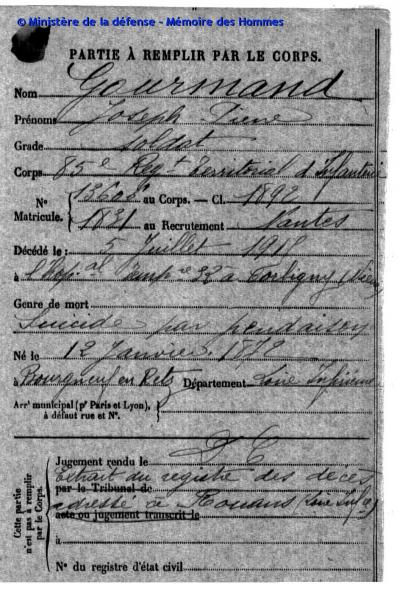 © Ministère de la défense - Mémoire des Hommes
PARTIE À REMPLIR PAR LE CORPS.
Nom Gourmand
Prénoms Joseph Pierre
Grade Soldat
Corps 85e Régt Territorial d'Infanterie
N° Matricule. 13608 au Corps. — Cl. 1892
1831 au Recrutement Nantes
Décédé le : 5 Juillet 1918
à l'Hop.al 32 à Corbigny
Genre de mort
Suicide par pendaison
Né le 12 Janvier
à Bourgneuf en Retz Département Loire Inférieure
Arrt municipal (pr Paris et Lyon),
à défaut rue et N°.
Cette partie n'est pas à remplir par le Corps.
Jugement rendu le
Extrait du registre des décès
par le Tribunal de
adressé à Rouans (Loire Infre)
acte ou jugement transcrit le
à
N° du registre d'état civil